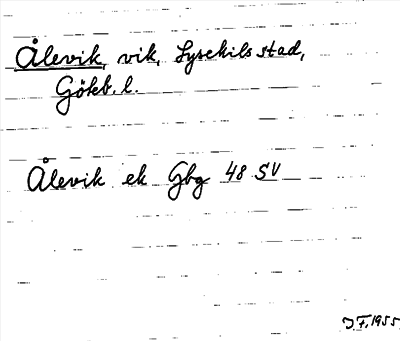 Ålevik, vik, Lysekils stad,
Götb. l.
Ålevik ek Gbg 48 SV
J.F. 1955